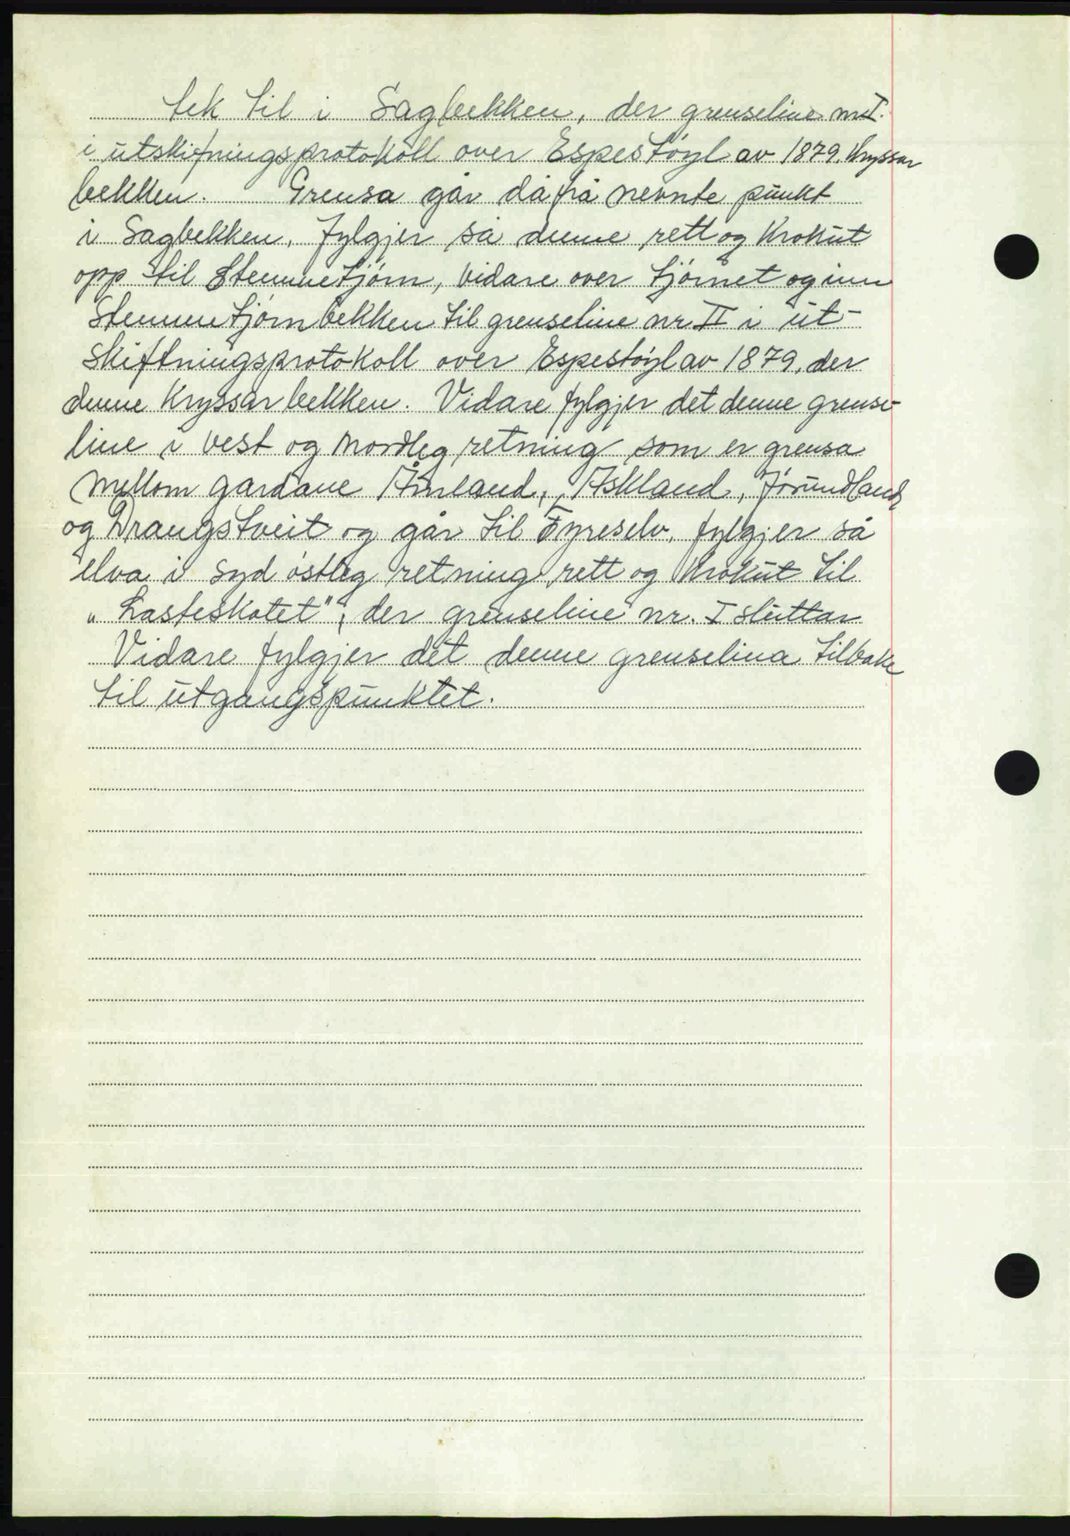 tek til i Sagbekken, der grenseline nr I.
i utskifningsprotokoll over Espestøyl av 1879. kryssar
bekken. Grensa går då frå nevnte punkt
i Sagbekken, fylgjer så denne rett og krokut
opp til Stemmetjørn, vidare over tjørnet og inn
Stemmetjørnbekken til grenseline nr II i ut-
skiftningsprotokoll over Espestøyl av 1879, der
denne kryssar bekken. Vidare fylgjer det denne grense-
line i vest og nordleg retning som er grensa
mellom gardane Åmland, Askland, Jørundland,
og Drangstveit og går til Fyreselv, fylgjer så
elva i syd østleg retning rett og krokut til
„Lasteskotet", der grenseline nr. I sluttar
Vidare fylgjer det denne grenselina tilbake
til utgangspunktet.